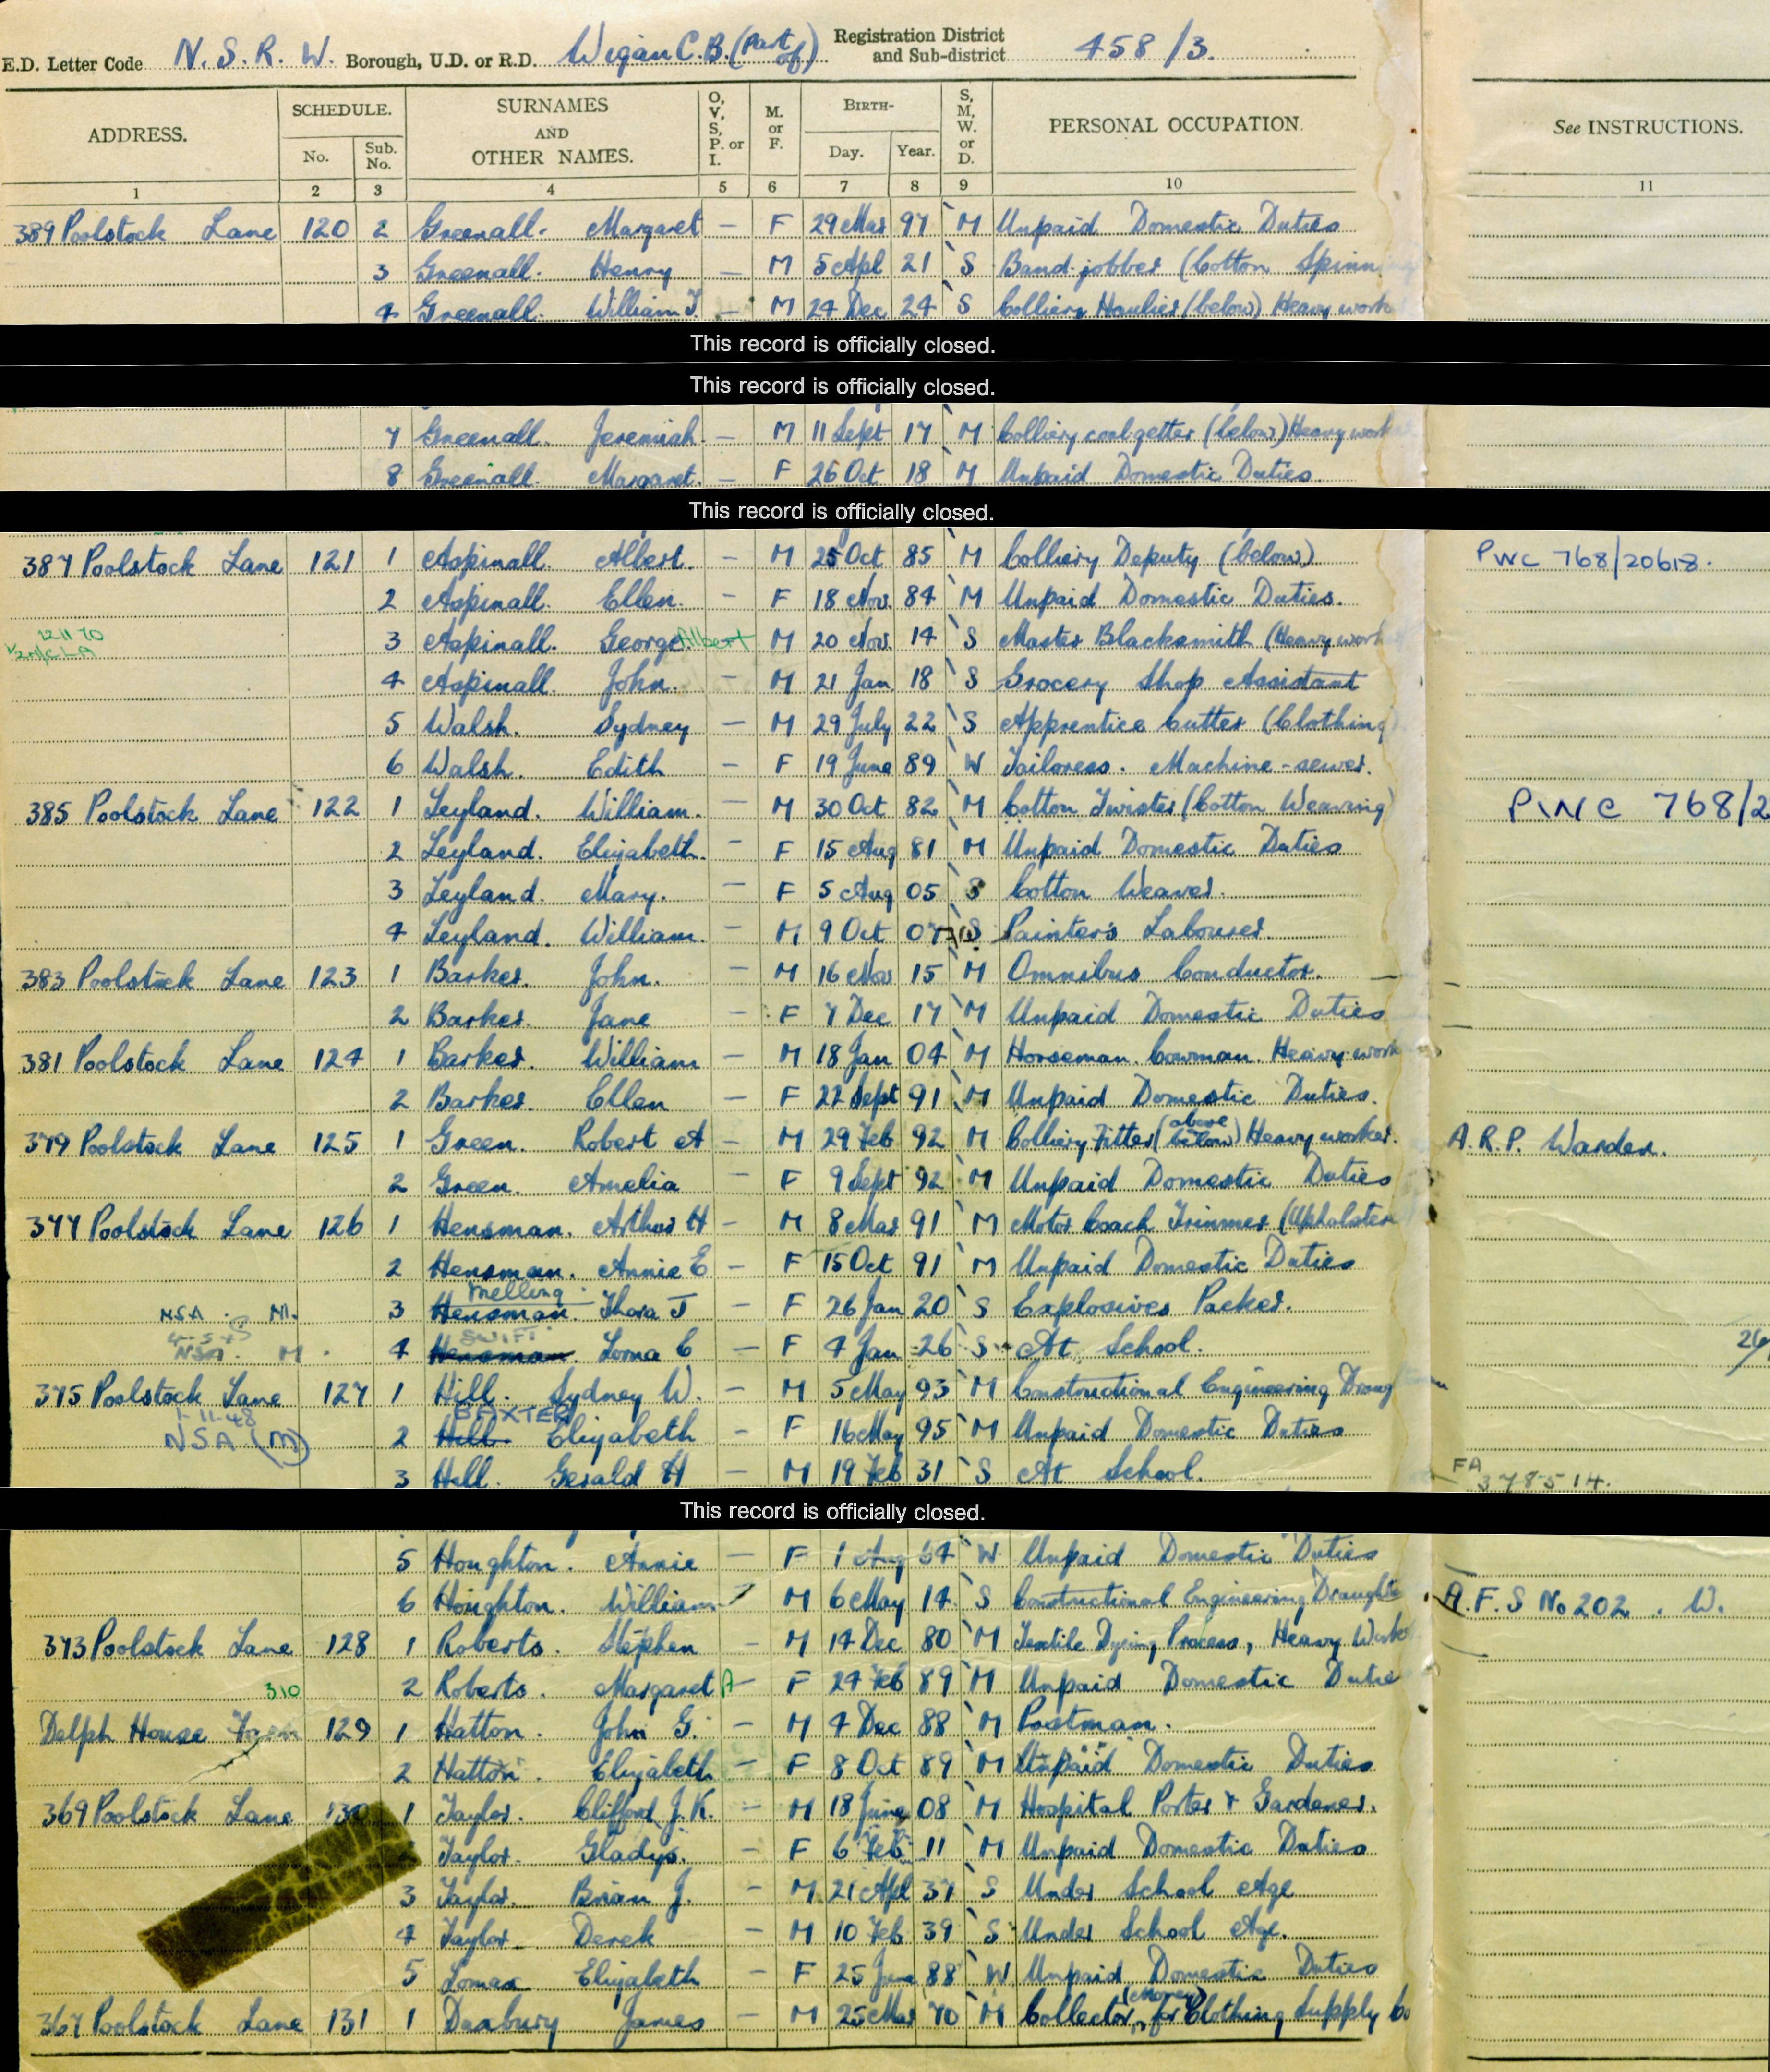 E.D. Letter Code N. S. R. W. Borough, U.D. or R.D. Wigan C.B. (Part of) Registration District and Sub-district 458/3.
ADDRESS. SCHEDULE. No. Sub. No. SURNAMES AND OTHER NAMES. O, V, S, P. or I. M. or F. BIRTH- Day. Year. S, M, W. or D. PERSONAL OCCUPATION. See INSTRUCTIONS.
1 2 3 4 5 6 7 8 9 10 11
389 Poolstock Lane 120 2 Greenall. Margaret – F 29 Mar 97 M Unpaid Domestic Duties
3 Greenall. Henry – M 5 Apl 21 S Band jobber (Cotton Spinning
4 Greenall. William T. – M 24 Dec 24 S Colliery Haulier (below) Heavy work
This record is officially closed.
This record is officially closed.
7 Greenall. Jeremiah. – M 11 Sept 17 M Colliery coal getter (below) Heavy work
8 Greenall. Margaret. – F 26 Oct 18 M Unpaid Domestic Duties.
This record is officially closed.
387 Poolstock Lane 121 1 Aspinall. Albert. – M 25 Oct 85 M Colliery Deputy (below) PWC 768/20618.
2 Aspinall. Ellen. – F 18 Nov. 84 M Unpaid Domestic Duties.
12 11 70 3 Aspinall. George Albert M 20 Nov. 14 S Master Blacksmith (Heavy work
4 Aspinall. John. – M 21 Jan 18 S Grocery Shop Assistant
5 Walsh. Sydney – M 29 July 22 S Apprentice Cutter (Clothing)
6 Walsh. Edith – F 19 June 89 W Tailoress. Machine-sewer.
385 Poolstock Lane 122 1 Leyland. William. – M 30 Oct 82 M Cotton Twister (Cotton Weaving) PWC 768/2
2 Leyland. Elizabeth. – F 15 Aug 81 M Unpaid Domestic Duties
3 Leyland. Mary. – F 5 Aug 05 S Cotton Weaver.
4 Leyland. William. – M 9 Oct 07 S Painter's Labourer.
383 Poolstock Lane 123 1 Barker. John. – M 16 Nov 15 M Omnibus Conductor.
2 Barker. Jane – F 7 Dec 17 M Unpaid Domestic Duties
381 Poolstock Lane 124 1 Barker. William – M 18 Jan 04 M Horseman. Cowman. Heavy work
2 Barker. Ellen – F 22 Sept 91 M Unpaid Domestic Duties.
379 Poolstock Lane 125 1 Green. Robert A – M 29 Feb 92 M Colliery Fitter (above below) Heavy worker. A.R.P. Warden.
2 Green. Amelia – F 9 Sept 92 M Unpaid Domestic Duties
377 Poolstock Lane 126 1 Hensman. Arthur H – M 8 Mar 91 M Motor Coach Trimmer (Upholster
2 Hensman. Annie E – F 15 Oct 91 M Unpaid Domestic Duties
Melling
NSA M. 3 Hensman. Thora J – F 26 Jan 20 S Explosives Packer.
SWIFT.
NSA. M. 4 Hensman. Lorna C – F 4 Jan 26 S At School.
375 Poolstock Lane 127 1 Hill. Sydney W. – M 5 May 93 M Constructional Engineering Draug
1-11-48 BAXTER
NSA (M) 2 Hill Elizabeth – F 16 May 95 M Unpaid Domestic Duties
3 Hill. Gerald H – M 19 Feb 31 S At School. FA 378514.
This record is officially closed.
5 Houghton. Annie – F 1 Aug 64 W Unpaid Domestic Duties
6 Houghton. William M 6 May 14 S Constructional Engineering Draughts A.F.S No 202. W.
373 Poolstock Lane 128 1 Roberts. Stephen – M 14 Dec 80 M Textile Dyeing Process, Heavy Work
310 2 Roberts. Margaret A – F 24 Feb 89 M Unpaid Domestic Dutie
Delph House Farm 129 1 Hatton. John G. – M 4 Dec 88 M Postman.
2 Hatton. Elizabeth – F 8 Oct 89 M Unpaid Domestic Duties
369 Poolstock Lane 130 1 Taylor. Clifford J. K. – M 18 June 08 M Hospital Porter & Gardener.
Taylor. Gladys. – F 6 Feb 11 M Unpaid Domestic Duties
3 Taylor. Brian J. – M 21 Apl 37 S Under School Age
4 Taylor. Derek – M 10 Feb 39 S Under School Age.
5 Lomax Elizabeth – F 25 June 88 W Unpaid Domestic Duties
367 Poolstock Lane 131 1 Duxbury James – M 25 Mar 70 M Collector, (Money) for Clothing Supply Co